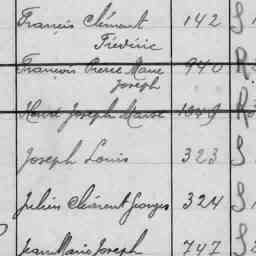 Francis Clément 142 S
Frédéric
François Pierre Marie 940 R
Joseph
Hervé Joseph Marie 1049 R
Joseph Louis 323 S
Julien Clément Georges 324 S
Jean Marie Joseph 747 S